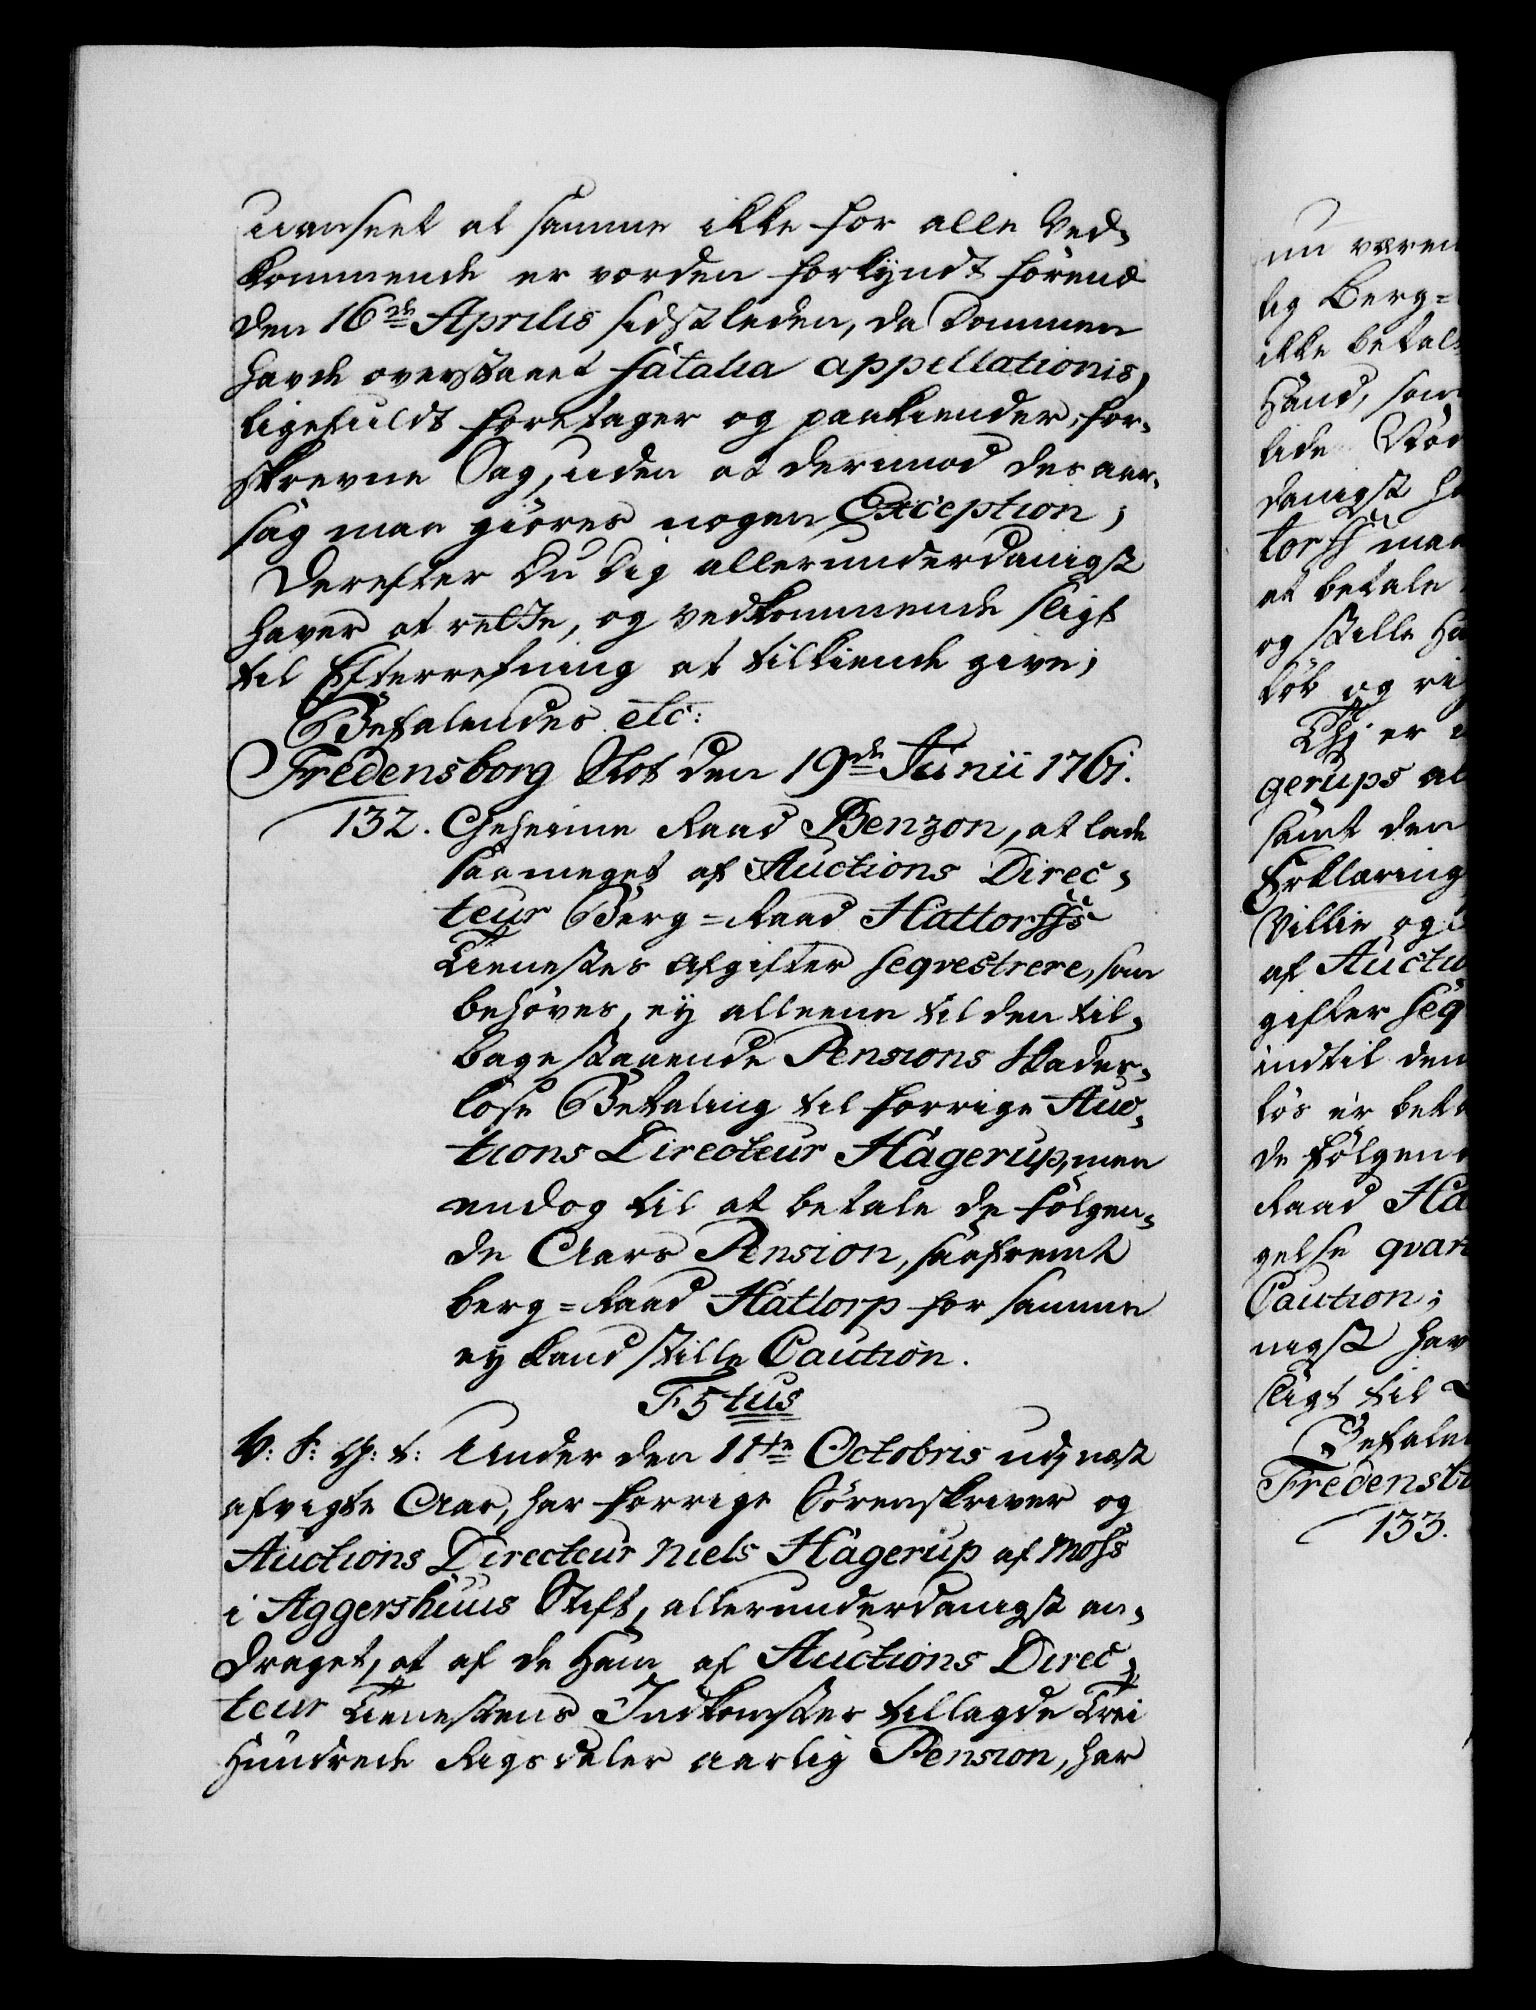 uanseet at samme ikke for alle Ved-
kommende er vorden forkyndt förend
den 16de Aprilis sidstleden, da Dommen
havde overstaaet fatalia appellationis,
ligefuldt foretager og paakiender for-
skrevne Sag, uden at derimod des aar-
sag maa giöres nogen Exception;
Derefter Du dig allerunderdanigst
haver at rette, og vedkommende sligt
til Efterretning at tilkiende give;
Befalendes etc:
Fredensborg Slot den 19de Junii 1761.
132. Geheime Raad Benzon, at lade
saameget af Auctions Direc-
teur Berg-Raad Hattorffs
Tienestes Afgifter seqvestrere, som
behöves, ey alleene til den til-
bagestaaende Pensions skades-
löse Betaling til forrige Auc-
tions Directeur Hagerup, men
endog til at betale de fölgen-
de Aars Pension, saafremt
Berg-Raad Hattorp for samme
ey kand stille Caution.
F 5 tus
V: S: G: T: Under den 11te Octobris udj næst
afvigte Aar, har forrige Sörenskriver og
Auctions Directeur Niels Hagerup af Moss
i Aggershuus Stift, allerunderdanigst an-
draget, at af de Ham af Auctions Direc-
teur Tienestens Indkomster tillagde Trei
Hundrede Rigsdaler aarlig Pension, har
nu væren
lig Berg=
ikke betal
Haand, som
danigst ha
torff maa
at betale
og stille Ha
löb og ri
Thi er
gerups al
samt den
Erklæring
Villie og
af Auctio
gifter seq
indtil den
lös er beta
de fölgen
Raad Ha
gelse qvar
Caution;
nigst hav
sligt til
Befale
Fredensb
133.